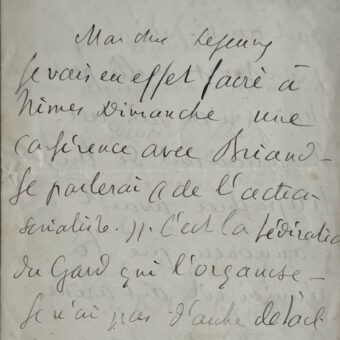 Mon cher Lejeune
Je vais en effet faire à
Nîmes Dimanche une
conférence avec Briand –
Je parlerai « de l'action
socialiste. » C'est la fédération
du Gard qui l'organise –
Je n'ai pas d'autre détail